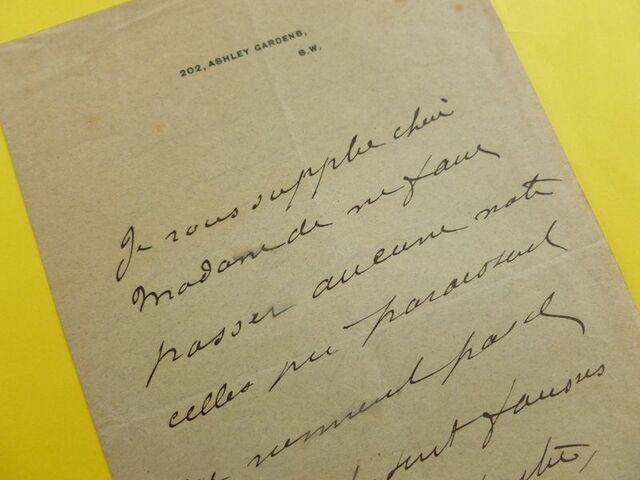 202, ASHLEY GARDENS,
S.W.
Je vous supplie chère
Madame de ne faire
passer aucune note
celles qui paraissent
viennent pas d
sont